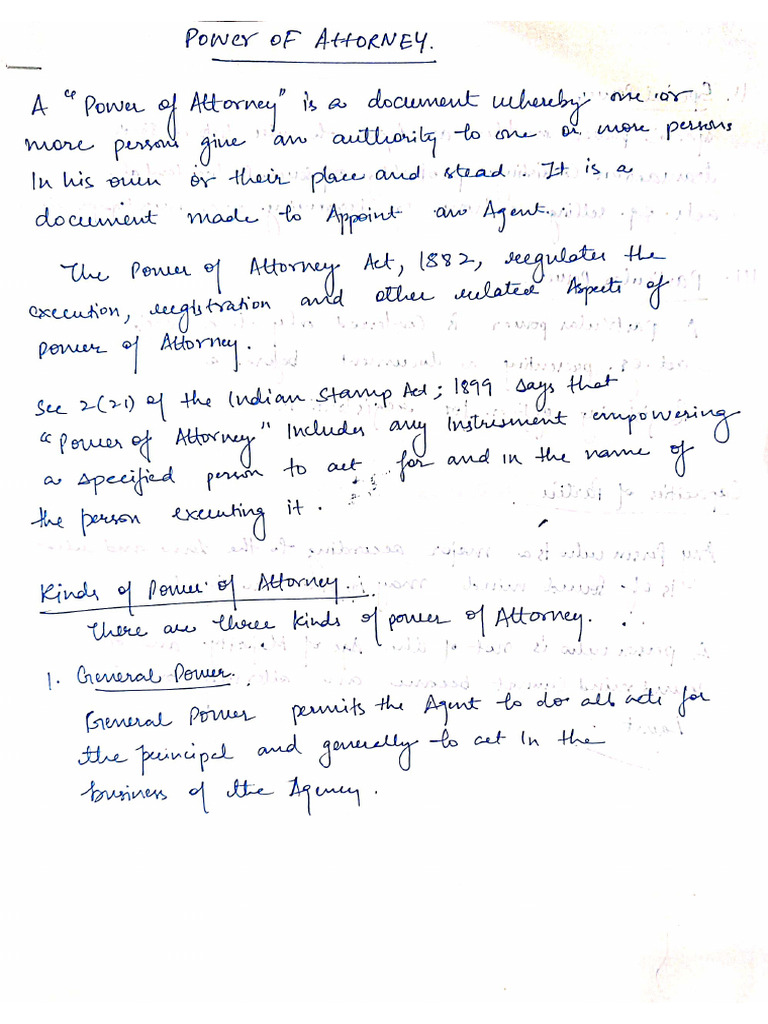 POWER OF ATTORNEY.
A "Power of Attorney" is a document whereby one or
more persons give an authority to one or more persons
In his own or their place and stead. It is a
document made to Appoint an Agent.
The Power of Attorney Act, 1882, regulates the
execution, registration and other related Aspects of
power of Attorney.
Sec 2(21) of the Indian Stamp Act; 1899 says that
"Power of Attorney" Includes any Instrument empowering
a specified person to act for and in the name of
the person executing it.
Kinds of Power of Attorney.
There are three kinds of power of Attorney.
1. General Power.
General Power permits the Agent to do all acts for
the principal and generally to act In the
business of the Agency.